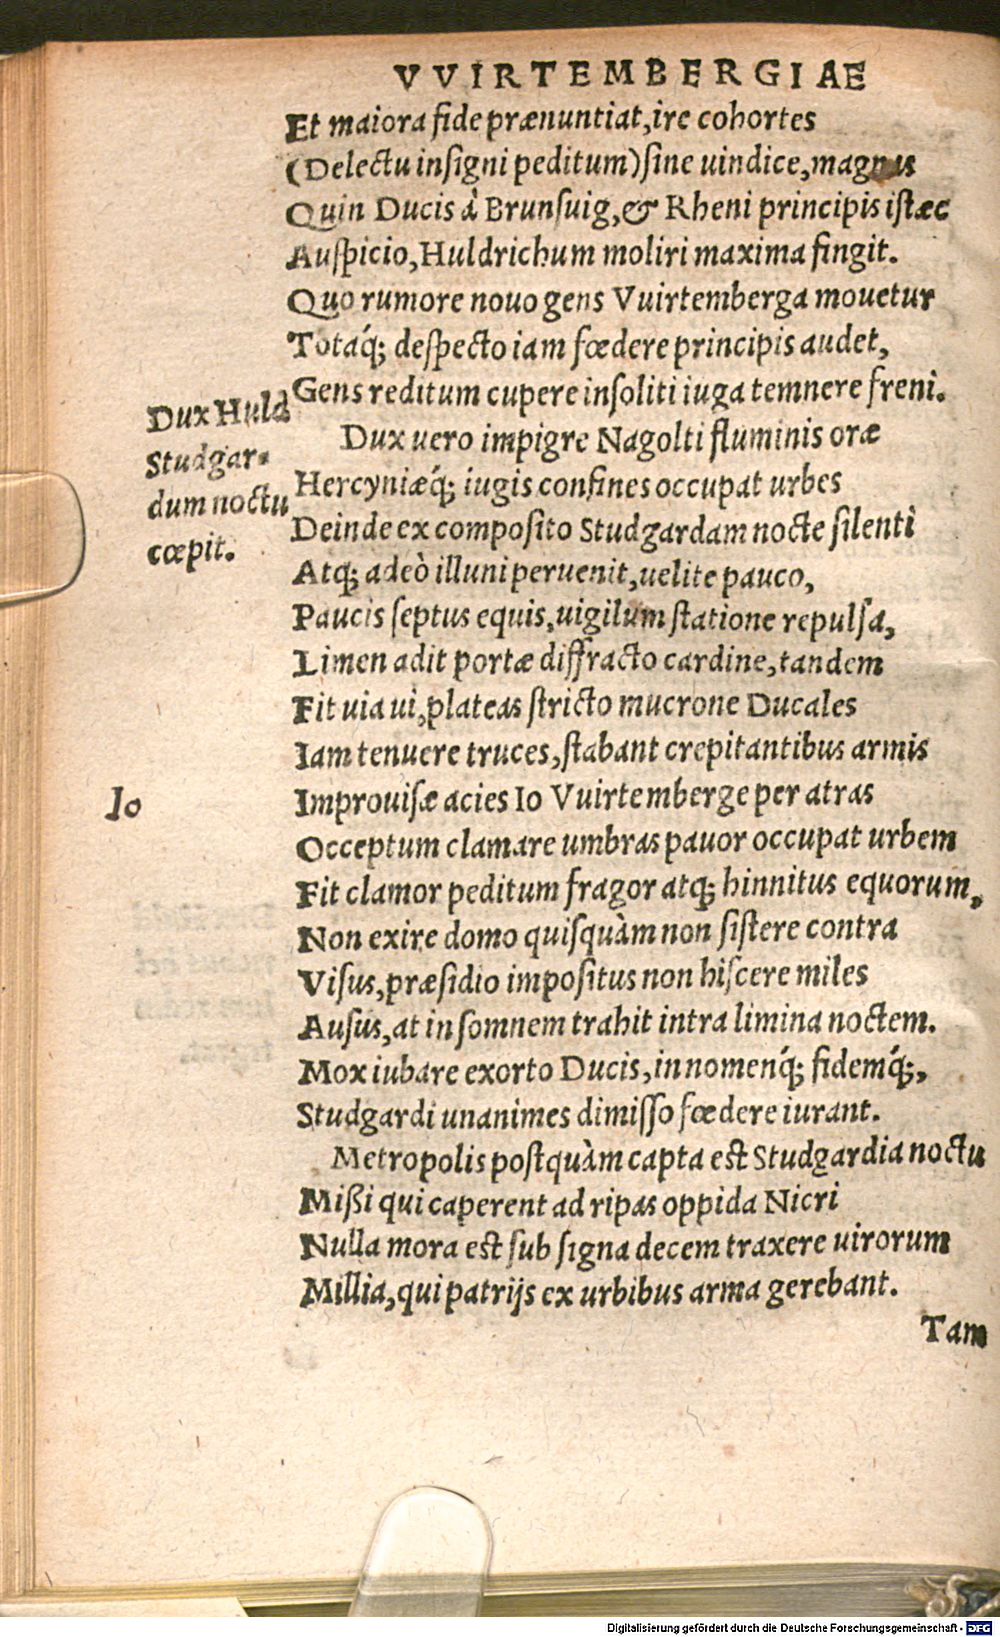 VVIRTEMBERGIAE
Et maiora fide prænuntiat, ire cohortes
(Delectu insigni peditum) sine uindice, magnis
Quin Ducis à Brunsuig, & Rheni principis istæc
Auspicio, Huldrichum moliri maxima fingit.
Quo rumore nouo gens Vuirtemberga mouetur
Totáq; despecto iam fœdere principis audet,
Gens reditum cupere insoliti iuga temnere freni.
Dux uero impigre Nagolti fluminis oræ
Hercyniæq́; iugis confines occupat urbes
Deinde ex composito Studgardam nocte silenti
Atq; adeò illuni peruenit, uelite pauco,
Paucis septus equis, uigilum statione repulsa,
Limen adit portæ diffracto cardine, tandem
Fit uia ui, plateas stricto mucrone Ducales
Iam tenuere truces, stabant crepitantibus armis
Improuisæ acies Io Vuirtemberge per atras
Occeptum clamare umbras pauor occupat urbem
Fit clamor peditum fragor atq; hinnitus equorum,
Non exire domo quisquàm non sistere contra
Visus, præsidio impositus non hiscere miles
Ausus, at in somnem trahit intra limina noctem.
Mox iubare exorto Ducis, in nomenq́; fidemq́;,
Studgardi unanimes dimisso fœdere iurant.
Metropolis postquàm capta est Studgardia noctu
Mißi qui caperent ad ripas oppida Nicri
Nulla mora est sub signa decem traxere uirorum
Millia, qui patrijs ex urbibus arma gerebant.
Tam
Dux Huld
Studgar-
dum noctu
cœpit.
Io
Digitalisierung gefördert durch die Deutsche Forschungsgemeinschaft - DFG